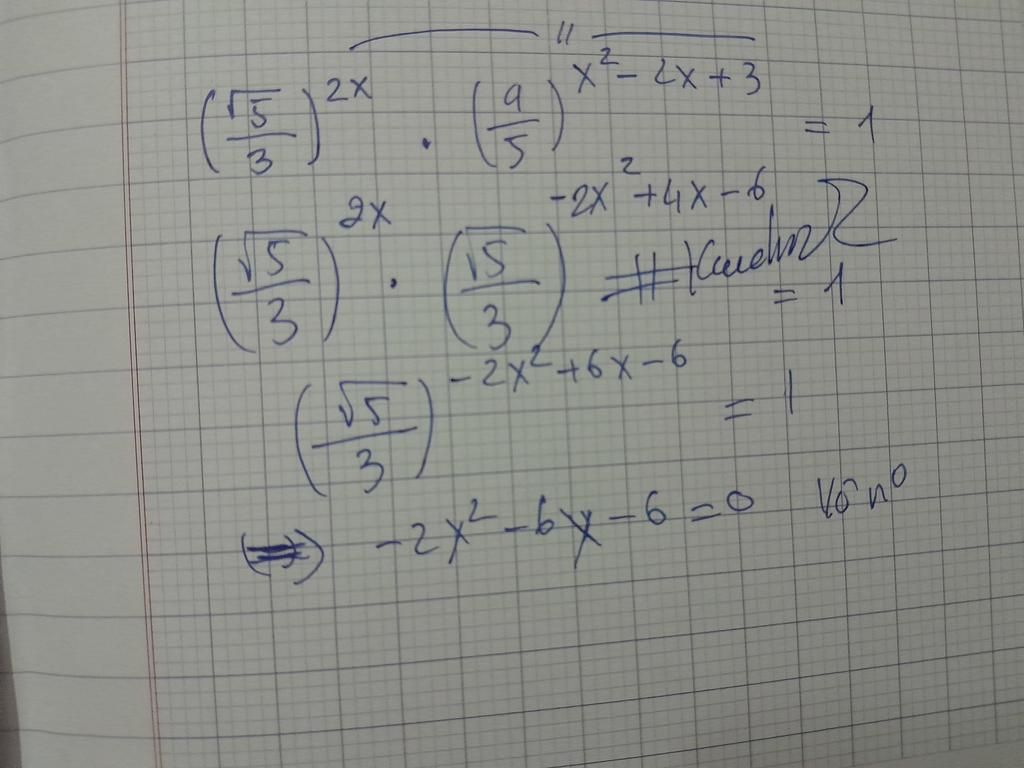 (√5/3)^(2x) · (9/5)^(x² - 2x + 3) = 1
(√5/3)^(2x) · (√5/3)^(-2x² + 4x - 6) = 1
(√5/3)^(-2x² + 6x - 6) = 1
(⇒) -2x² - 6x - 6 = 0 Vô n⁰